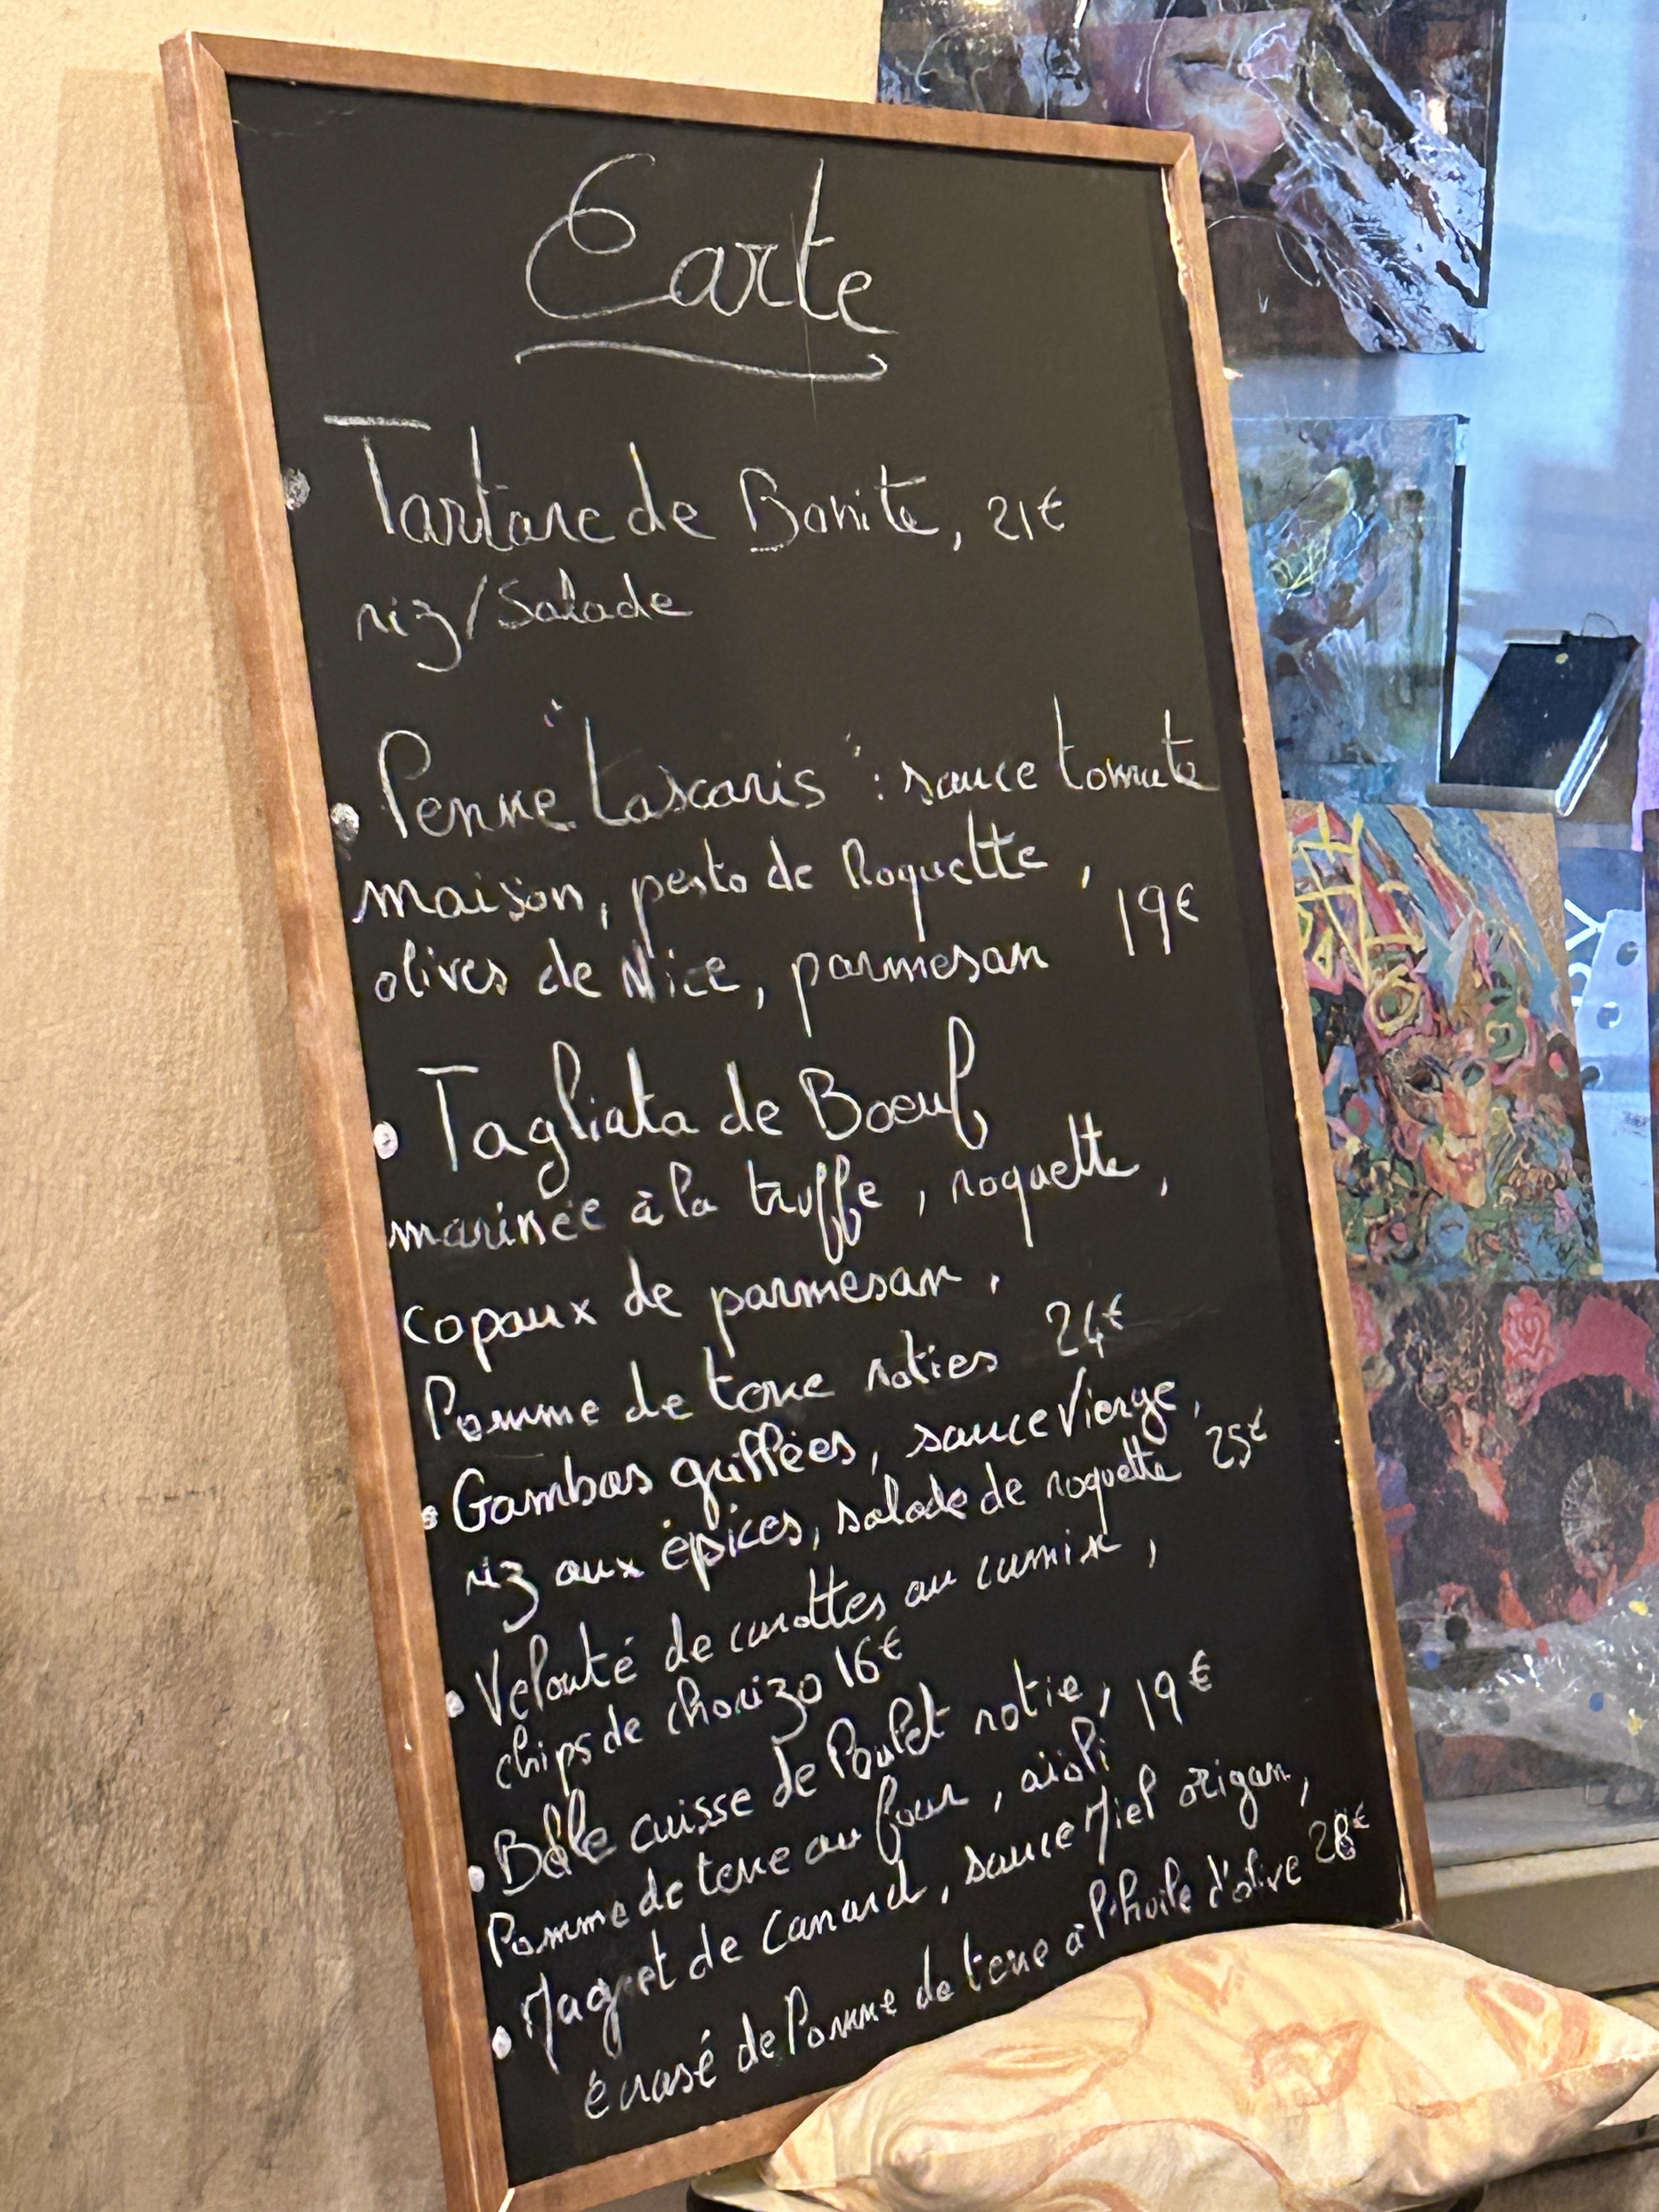 Carte
• Tartare de Bonite, 21€
riz/Salade
• Penne "Lascaris" : sauce tomate
maison, pesto de Roquette,
olives de Nice, parmesan 19€
• Tagliata de Boeuf
marinée à la truffe, roquette,
copaux de parmesan,
Pomme de terre roties 24€
• Gambas grillées, sauce Vierge,
riz aux épices, salade de roquette 25€
• Velouté de carottes au cumin,
chips de chorizo 16€
• Belle cuisse de Poulet rotie,
Pomme de terre au four, aïoli 19€
• Magret de Canard, sauce Miel origan,
écrasé de Pomme de terre à l'huile d'olive 28€